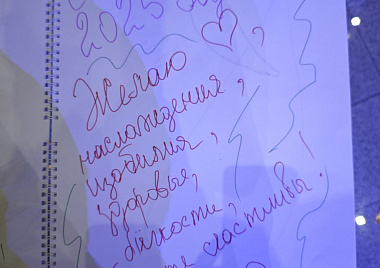 2025 год
Желаю
наслаждения,
изобилия,
здоровья,
лёгкости,
счастливы!